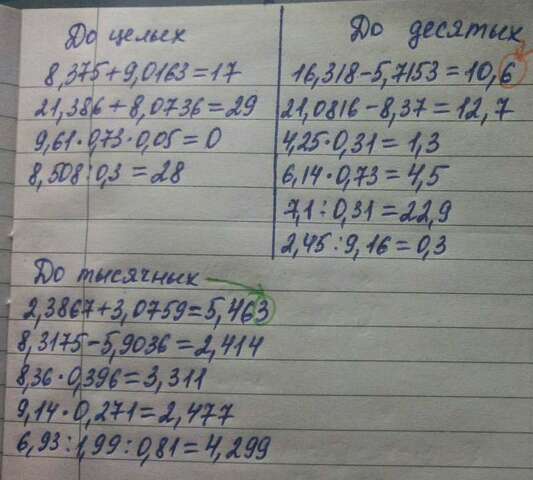 До целых
8,375+9,0163=17
21,386+8,0736=29
9,61·0,73·0,05=0
8,508:0,3=28
До десятых
16,318-5,7153=10,6
21,0816-8,37=12,7
4,25·0,31=1,3
6,14·0,73=4,5
7,1:0,31=22,9
2,45:9,16=0,3
До тысячных
2,3867+3,0759=5,463
8,3175-5,9036=2,414
8,36·0,396=3,311
9,14·0,271=2,477
6,93:1,99:0,81=4,299